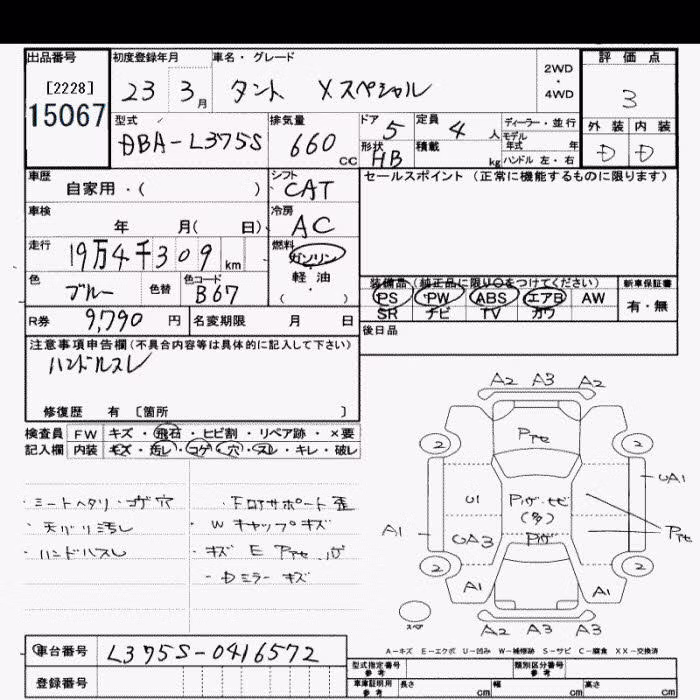 出品番号
[2228]
15067
初度登録年月
23 3月
車名・グレード
タント Xスペシャル
2WD
・
4WD
評価点
3
外装 内装
D D
型式
DBA-L375S
排気量
660 CC
ドア 5
定員 4 人
形状 HB
積載 kg
ディーラー・並行
モデル
年式 年
ハンドル 左・右
車歴
自家用・( )
シフト
CAT
セールスポイント (正常に機能するものに限ります)
車検
年 月( 日)
冷房
AC
走行
19万4千309 km
燃料
ガソリン
軽・油
・( )
色
ブルー
色替
色コード
B67
装備品 (純正品に限り〇をつけてください)
PS PW ABS エアB AW
SR ナビ TV カワ
新車保証書
有・無
R券 9,790 円
名変期限 月 日
後日品
注意事項申告欄(不具合内容等は具体的に記入して下さい)
ハンドルスレ
修復歴 有 〔箇所 〕
検査員
記入欄
FW キズ・飛石・ヒビ割・リペア跡・×要
内装 キズ・汚し・コゲ・穴・スレ・キレ・破レ
・シートヘタリ・コゲ穴
・天バリ汚し
・ハンドルスレ
・Fロアサポート歪
・Wキャップキズ
・キズ E Pアセ
・Dミラーキズ
A2 A3 A2
Pアセ
2 2
U1
Pハゲ・セビ
(多)
UA1
A1
UA3
Pハゲ
Pアセ
2 2
A1 A1
スペア
A2 A3 A3
A-キズ E-エクボ U-凹み W-補修跡 S-サビ C-腐食 XX-交換済
車台番号 L375S-0416572
登録番号
型式指定番号
参考
類別区分番号
参考
車庫証明用
参考
長さ cm
幅 cm
高さ cm